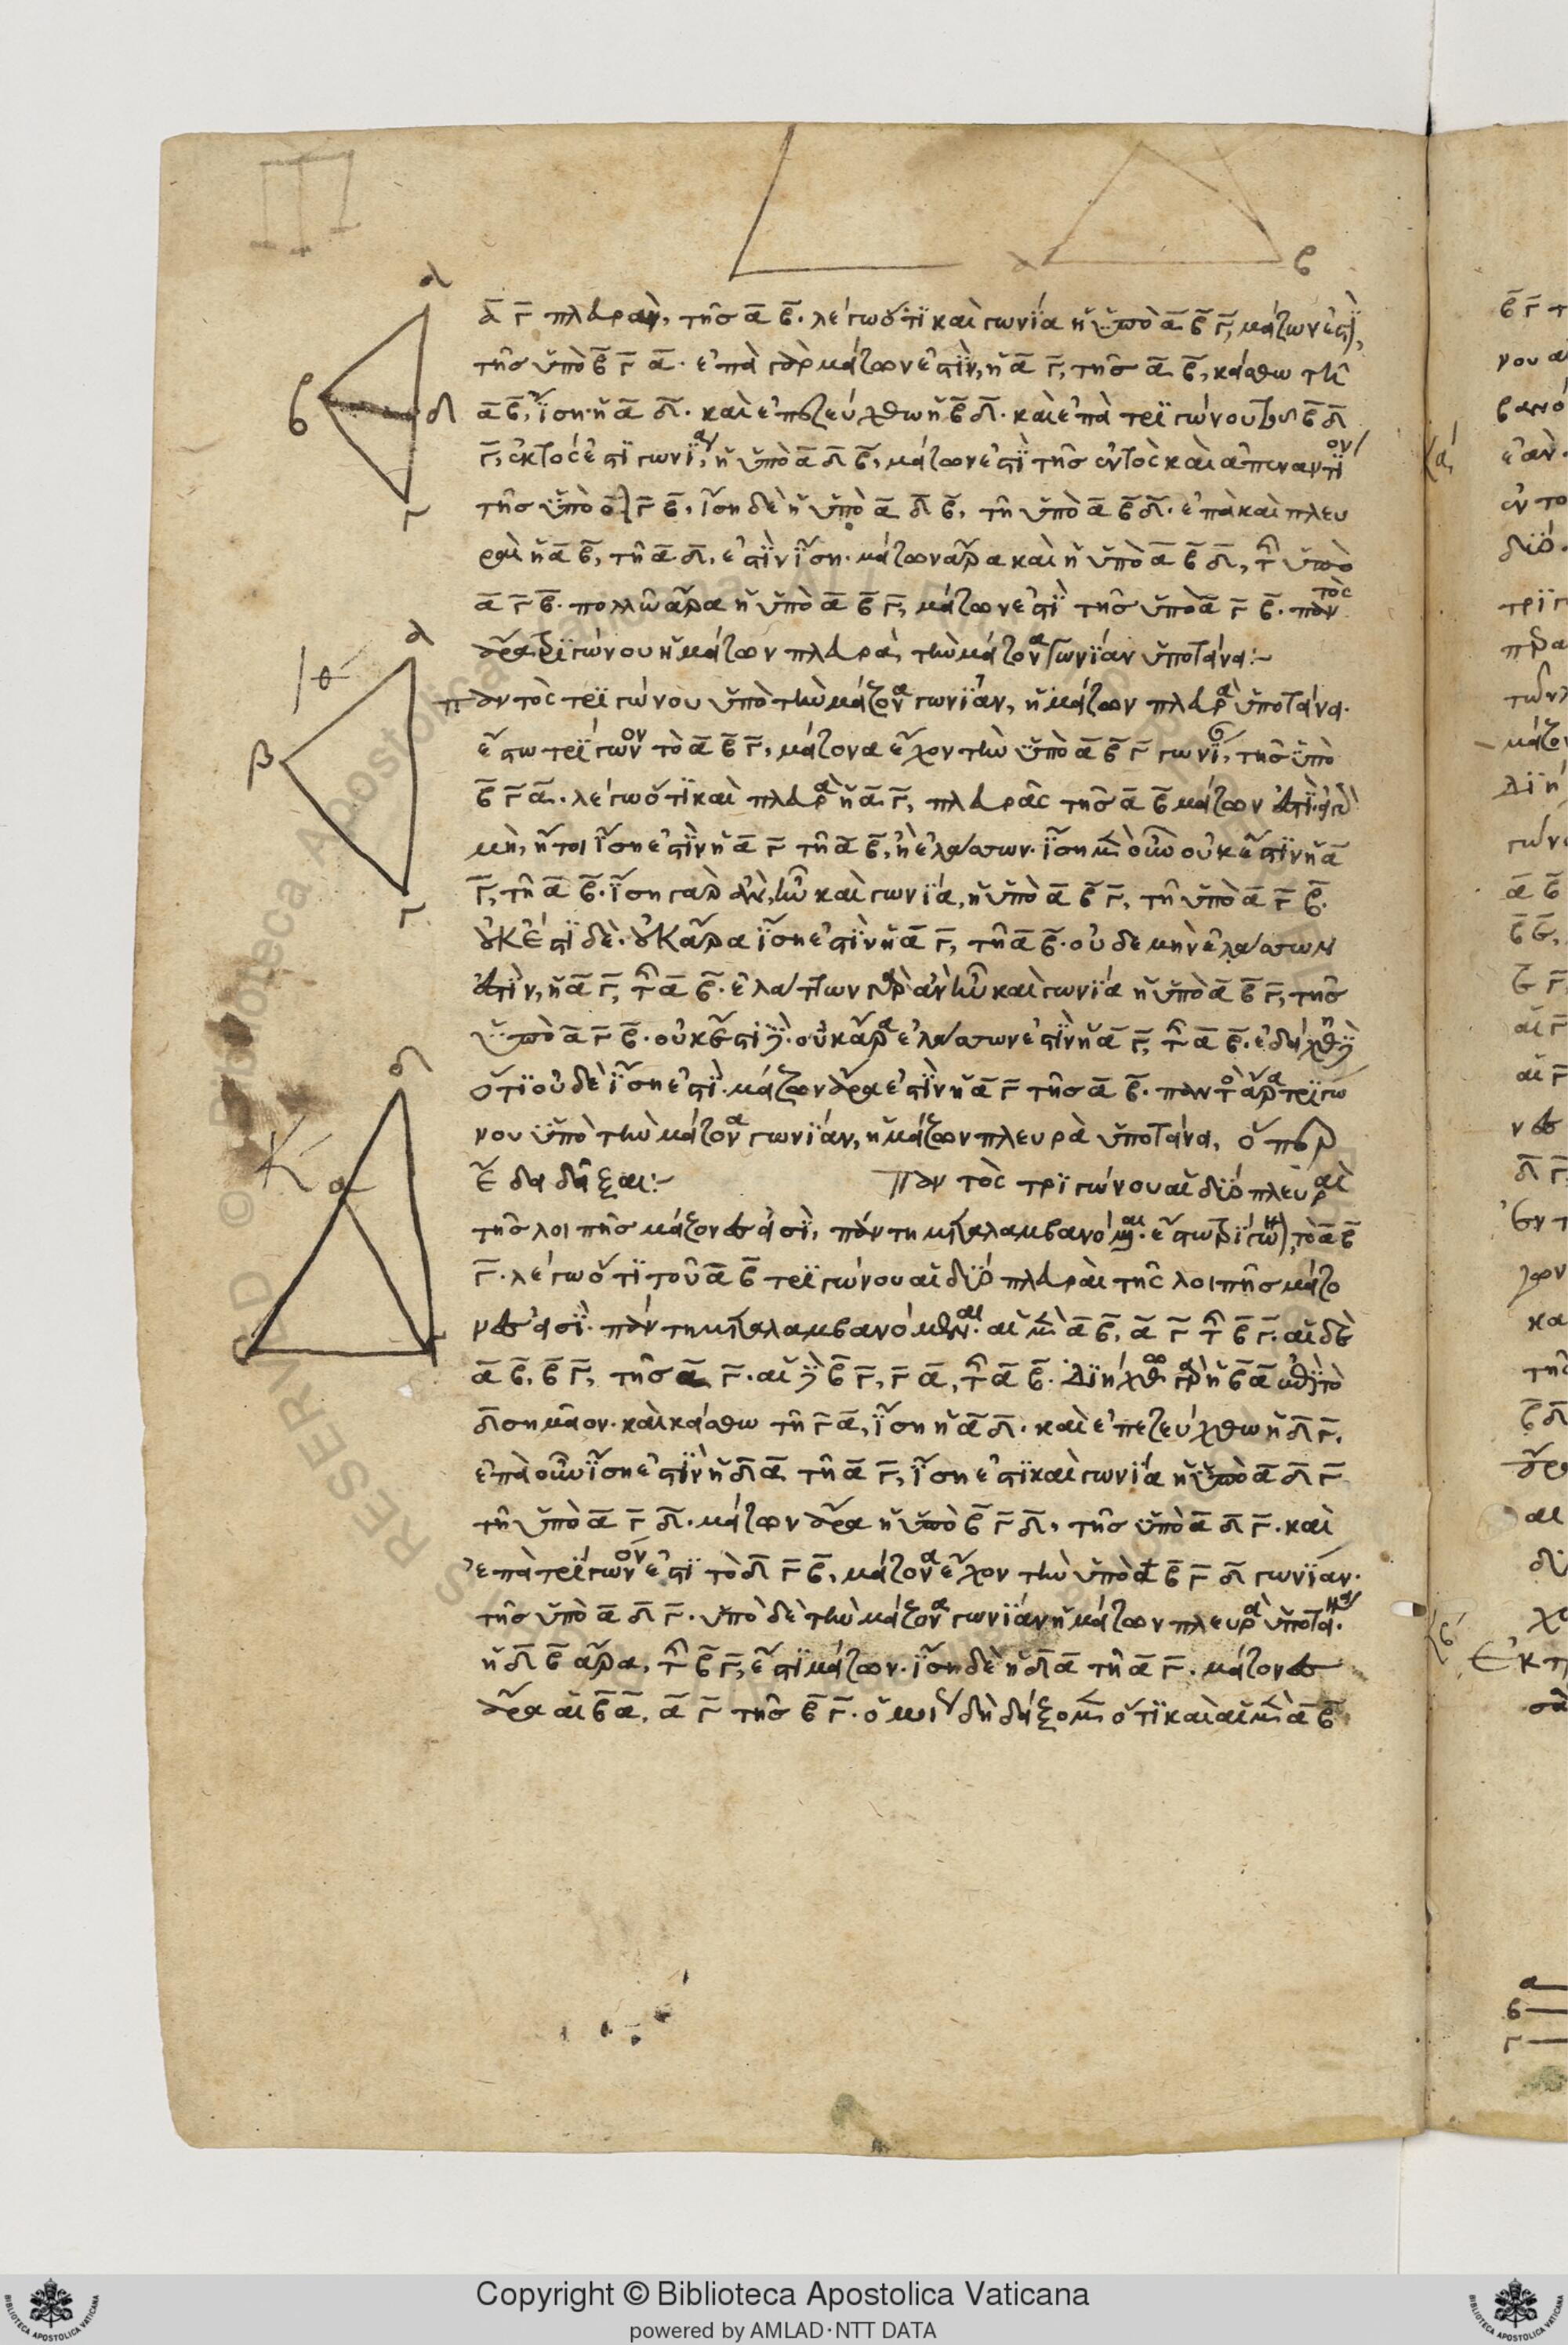 α
β
δ
γ
ᾱ γ̄ πλευρὰν, τῆς ᾱ β̄. λέγω ὅτι καὶ γωνία ἡ ὑπὸ ᾱ β̄ γ̄, μείζων ἐστὶ,
τῆς ὑπὸ β̄ γ̄ ᾱ. ἐπεὶ γὰρ μείζων ἐστὶν, ἡ ᾱ γ̄, τῆς ᾱ β̄, κείσθω τῆ
ᾱ β̄, ἴση ἡ ᾱ δ̄. καὶ ἐπεζεύχθω ἡ β̄ δ̄. καὶ ἐπεὶ τριγώνου τοῦ β̄ δ̄
γ̄, ἐκτός ἐστι γωνία, ἡ ὑπὸ ᾱ δ̄ β̄, μείζων ἐστὶ τῆς ἐντὸς καὶ ἀπεναντίον
τῆς ὑπὸ δ̄ γ̄ β̄. ἴση δὲ ἡ ὑπὸ ᾱ δ̄ β̄, τῆ ὑπὸ ᾱ β̄ δ̄. ἐπεὶ καὶ πλευ
ρὰ ἡ ᾱ β̄, τῆ ᾱ δ̄, ἐστὶν ἴση. μείζων ἄρα καὶ ἡ ὑπὸ ᾱ β̄ δ̄, τῆς ὑπὸ
ᾱ γ̄ β̄. πολλῶ ἄρα ἡ ὑπὸ ᾱ β̄ γ̄, μείζων ἐστὶ τῆς ὑπὸ ᾱ γ̄ β̄. παντὸς
ἄρα τριγώνου ἡ μείζων πλευρὰ, τὴν μείζονα γωνίαν ὑποτείνει:~
α
ιθ
β
γ
παντὸς τριγώνου ὑπὸ τὴν μείζονα γωνίαν, ἡ μείζων πλευρὰ ὑποτείνει.
ἔστω τρίγωνον τὸ ᾱ β̄ γ̄, μείζονα ἔχον τὴν ὑπὸ ᾱ β̄ γ̄ γωνίαν, τῆς ὑπὸ
β̄ γ̄ ᾱ. λέγω ὅτι καὶ πλευρὰ ἡ ᾱ γ̄, πλευρᾶς τῆς ᾱ β̄ μείζων ἐστὶ. εἰ γὰρ
μὴ, ἤτοι ἴση ἐστὶν ἡ ᾱ γ̄ τῆ ᾱ β̄, ἢ ἐλάσσων. ἴση μὲν οὖν οὐκ ἔστιν ἡ ᾱ
γ̄, τῆ ᾱ β̄. ἴση γὰρ ἂν, ἦν καὶ γωνία, ἡ ὑπὸ ᾱ β̄ γ̄, τῆ ὑπὸ ᾱ γ̄ β̄.
οὐκ ἔστι δὲ. οὐκ ἄρα ἴση ἐστὶν ἡ ᾱ γ̄, τῆ ᾱ β̄. οὐδὲ μὴν ἐλάσσων
ἐστὶν, ἡ ᾱ γ̄, τῆς ᾱ β̄. ἐλάττων γὰρ ἂν ἦν καὶ γωνία ἡ ὑπὸ ᾱ β̄ γ̄, τῆς
ὑπὸ ᾱ γ̄ β̄. οὐκ ἔστι δὲ. οὐκ ἄρα ἐλάσσων ἐστὶν ἡ ᾱ γ̄, τῆς ᾱ β̄. ἐδείχθη δὲ
ὅτι οὐδὲ ἴση ἐστὶ. μείζων ἄρα ἐστὶν ἡ ᾱ γ̄ τῆς ᾱ β̄. παντὸς ἄρα τριγώ
νου ὑπὸ τὴν μείζονα γωνίαν, ἡ μείζων πλευρὰ ὑποτείνει, ὅπερ
ἔδει δεῖξαι:~ Παντὸς τριγώνου αἱ δύο πλευραὶ
δ
Κ
α
β
γ
τῆς λοιπῆς μείζονες εἰσὶ, πάντη μεταλαμβανόμεναι. ἔστω τρίγωνον, τὸ ᾱ β̄
γ̄. λέγω ὅτι τοῦ ᾱ β̄ τριγώνου αἱ δύο πλευραὶ τῆς λοιπῆς μείζο
νες εἰσὶ. πάντη μεταλαμβανόμεναι. αἱ μὲν ᾱ β̄, ᾱ γ̄ τῆς β̄ γ̄. αἱ δὲ
ᾱ β̄, β̄ γ̄, τῆς ᾱ γ̄. αἱ δὲ β̄ γ̄, γ̄ ᾱ, τῆς ᾱ β̄. Διήχθω γὰρ ἡ β̄ ᾱ ἐπὶ τὸ
δ̄ σημεῖον. καὶ κείσθω τῆ γ̄ ᾱ, ἴση ἡ ᾱ δ̄. καὶ ἐπεζεύχθω ἡ δ̄ γ̄.
ἐπεὶ οὖν ἴση ἐστὶν ἡ δ̄ ᾱ τῆ ᾱ γ̄, ἴση ἐστὶ καὶ γωνία ἡ ὑπὸ ᾱ δ̄ γ̄
τῆ ὑπὸ ᾱ γ̄ δ̄. μείζων ἄρα ἡ ὑπὸ β̄ γ̄ δ̄, τῆς ὑπὸ ᾱ δ̄ γ̄. καὶ
ἐπεὶ τρίγωνόν ἐστι τὸ δ̄ γ̄ β̄, μείζονα ἔχον τὴν ὑπὸ β̄ γ̄ δ̄ γωνίαν.
τῆς ὑπὸ ᾱ δ̄ γ̄. ὑπὸ δὲ τὴν μείζονα γωνίαν ἡ μείζων πλευρὰ ὑποτείνει.
ἡ δ̄ β̄ ἄρα, τῆς β̄ γ̄, ἐστὶ μείζων. ἴση δὲ ἡ δ̄ ᾱ τῆ ᾱ γ̄. μείζονες
ἄρα αἱ β̄ ᾱ, ᾱ γ̄ τῆς β̄ γ̄. ὁμοίως δὴ δείξομεν ὅτι καὶ αἱ μὲν ᾱ β̄
Copyright © Biblioteca Apostolica Vaticana
powered by AMLAD·NTT DATA